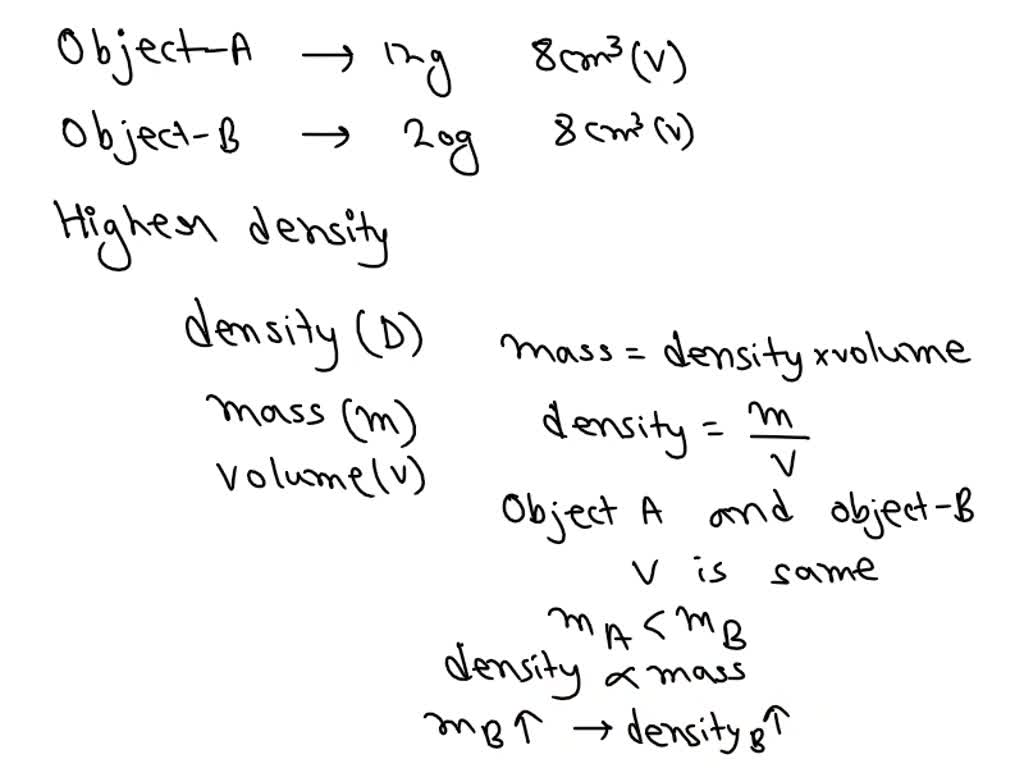 Object-A → 12g 8cm³(V)
Object-B → 20g 8cm³(V)
Higher density
density (D)
mass = density x volume
mass (m)
density = m/V
volume(V)
Object A and object-B
V is same
mA < mB
density ∝ mass
mB↑ → densityB↑